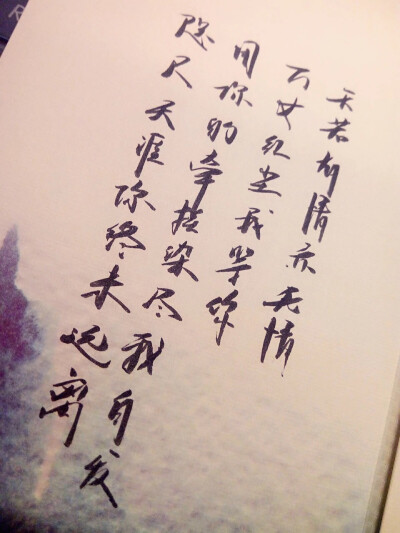 天若有情亦无情
万丈红尘我等你
用你的牵挂染尽我白发
咫尺天涯你终未远离